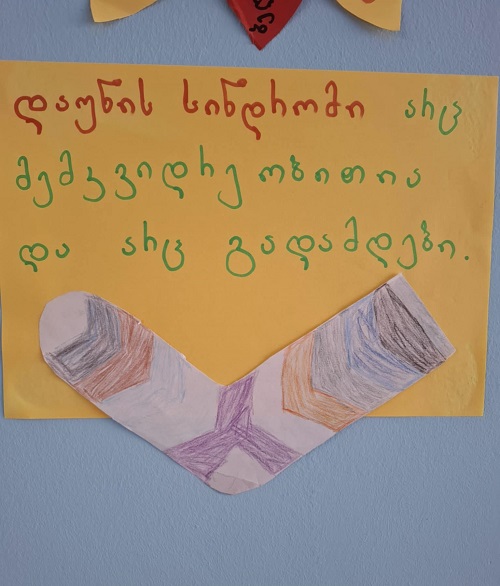 დაუნის სინდრომი არც
მემკვიდრეობითია
და არც გადამდები.